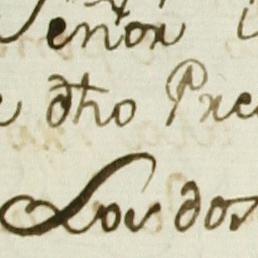 Señor
dho Pre
Los dos